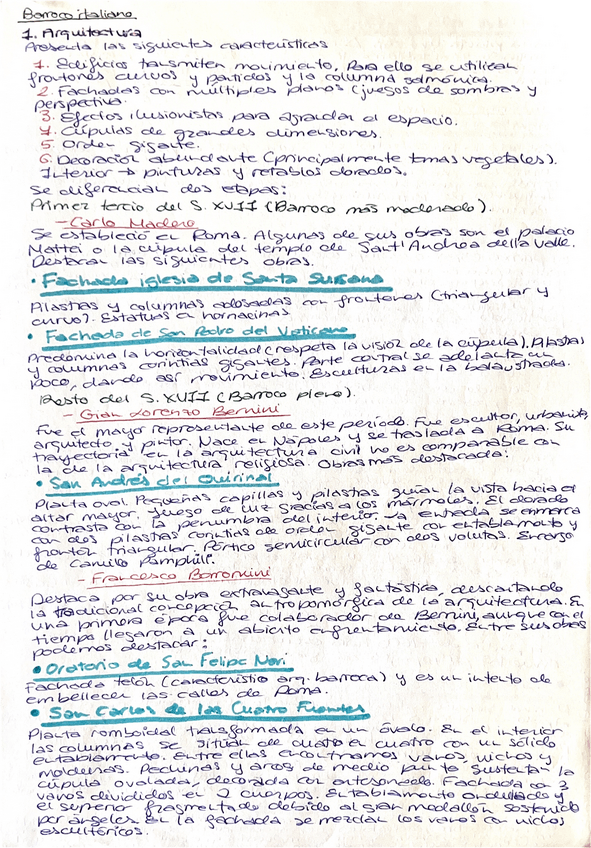 Barroco italiano
1. Arquitectura
Presenta las siguientes características
1. Edificios transmiten movimiento. Para ello se utilizan
frontones curvos y partidos y la columna salomónica.
2. Fachadas con múltiples planos (juegos de sombras y
perspectiva.
3. Efectos ilusionistas para agrandar el espacio.
4. Cúpulas de grandes dimensiones.
5. Orden gigante.
6. Decoración abundante (principalmente temas vegetales).
Interior → pinturas y retablos dorados.
Se diferencian dos etapas:
Primer tercio del S. XVII (Barroco más moderado).
- Carlo Maderno
Se estableció en Roma. Algunas de sus obras son el palacio
Mattei o la cúpula del templo de Sant'Andrea della Valle.
Destacan las siguientes obras.
• Fachada iglesia de Santa Susana
Pilastras y columnas adosadas con frontones (triangular y
curvo). Estatuas en hornacinas
• Fachada de San Pedro del Vaticano
Predomina la horizontalidad (respeta la visión de la cúpula). Pilastras
y columnas corintias gigantes. Parte central se adelanta un
poco, dando así movimiento. Esculturas en la balaustrada.
Resto del S. XVII (Barroco pleno).
- Gian Lorenzo Bernini
Fue el mayor representante de este período. Fue escultor, urbanista,
arquitecto y pintor. Nace en Nápoles y se traslada a Roma. Su
trayectoria en la arquitectura civil no es comparable con
la de la arquitectura religiosa. Obras más destacada:
• San Andrés del Quirinal
Planta oval. Pequeñas capillas y pilastras guían la vista hacia el
altar mayor. Juego de luz gracias a los mármoles. El dorado
contrasta con la penumbra del interior. La entrada se enmarca
con dos pilastras corintias de orden gigante con entablamento y
frontón triangular. Pórtico semicircular con dos volutas. Encargo
de Camillo Pamphili.
- Francesco Borromini
Destaca por su obra extravagante y fantástica, descartando
la tradicional concepción antropomórfica de la arquitectura. En
una primera época fue colaborador de Bernini, aunque con el
tiempo llegaron a un abierto enfrentamiento. Entre sus obras
podemos destacar:
• Oratorio de San Felipe Neri
Fachada telón (característico arq. barroca) y es un intento de
embellecer las calles de Roma.
• San Carlos de las Cuatro Fuentes
Planta romboidal transformada en un óvalo. En el interior
las columnas se sitúan de cuatro en cuatro con un sólido
entablamento. Entre ellas encontramos vanos, nichos y
molduras. Pechinas y arcos de medio punto sustentan la
cúpula ovalada y decorada con artesonado. Fachada con 3
vanos divididos en 2 cuerpos. Entablamento ondulado y
el superior fragmentado debido al gran medallón sostenido
por ángeles. En la fachada se mezclan los vanos con nichos
escultóricos.